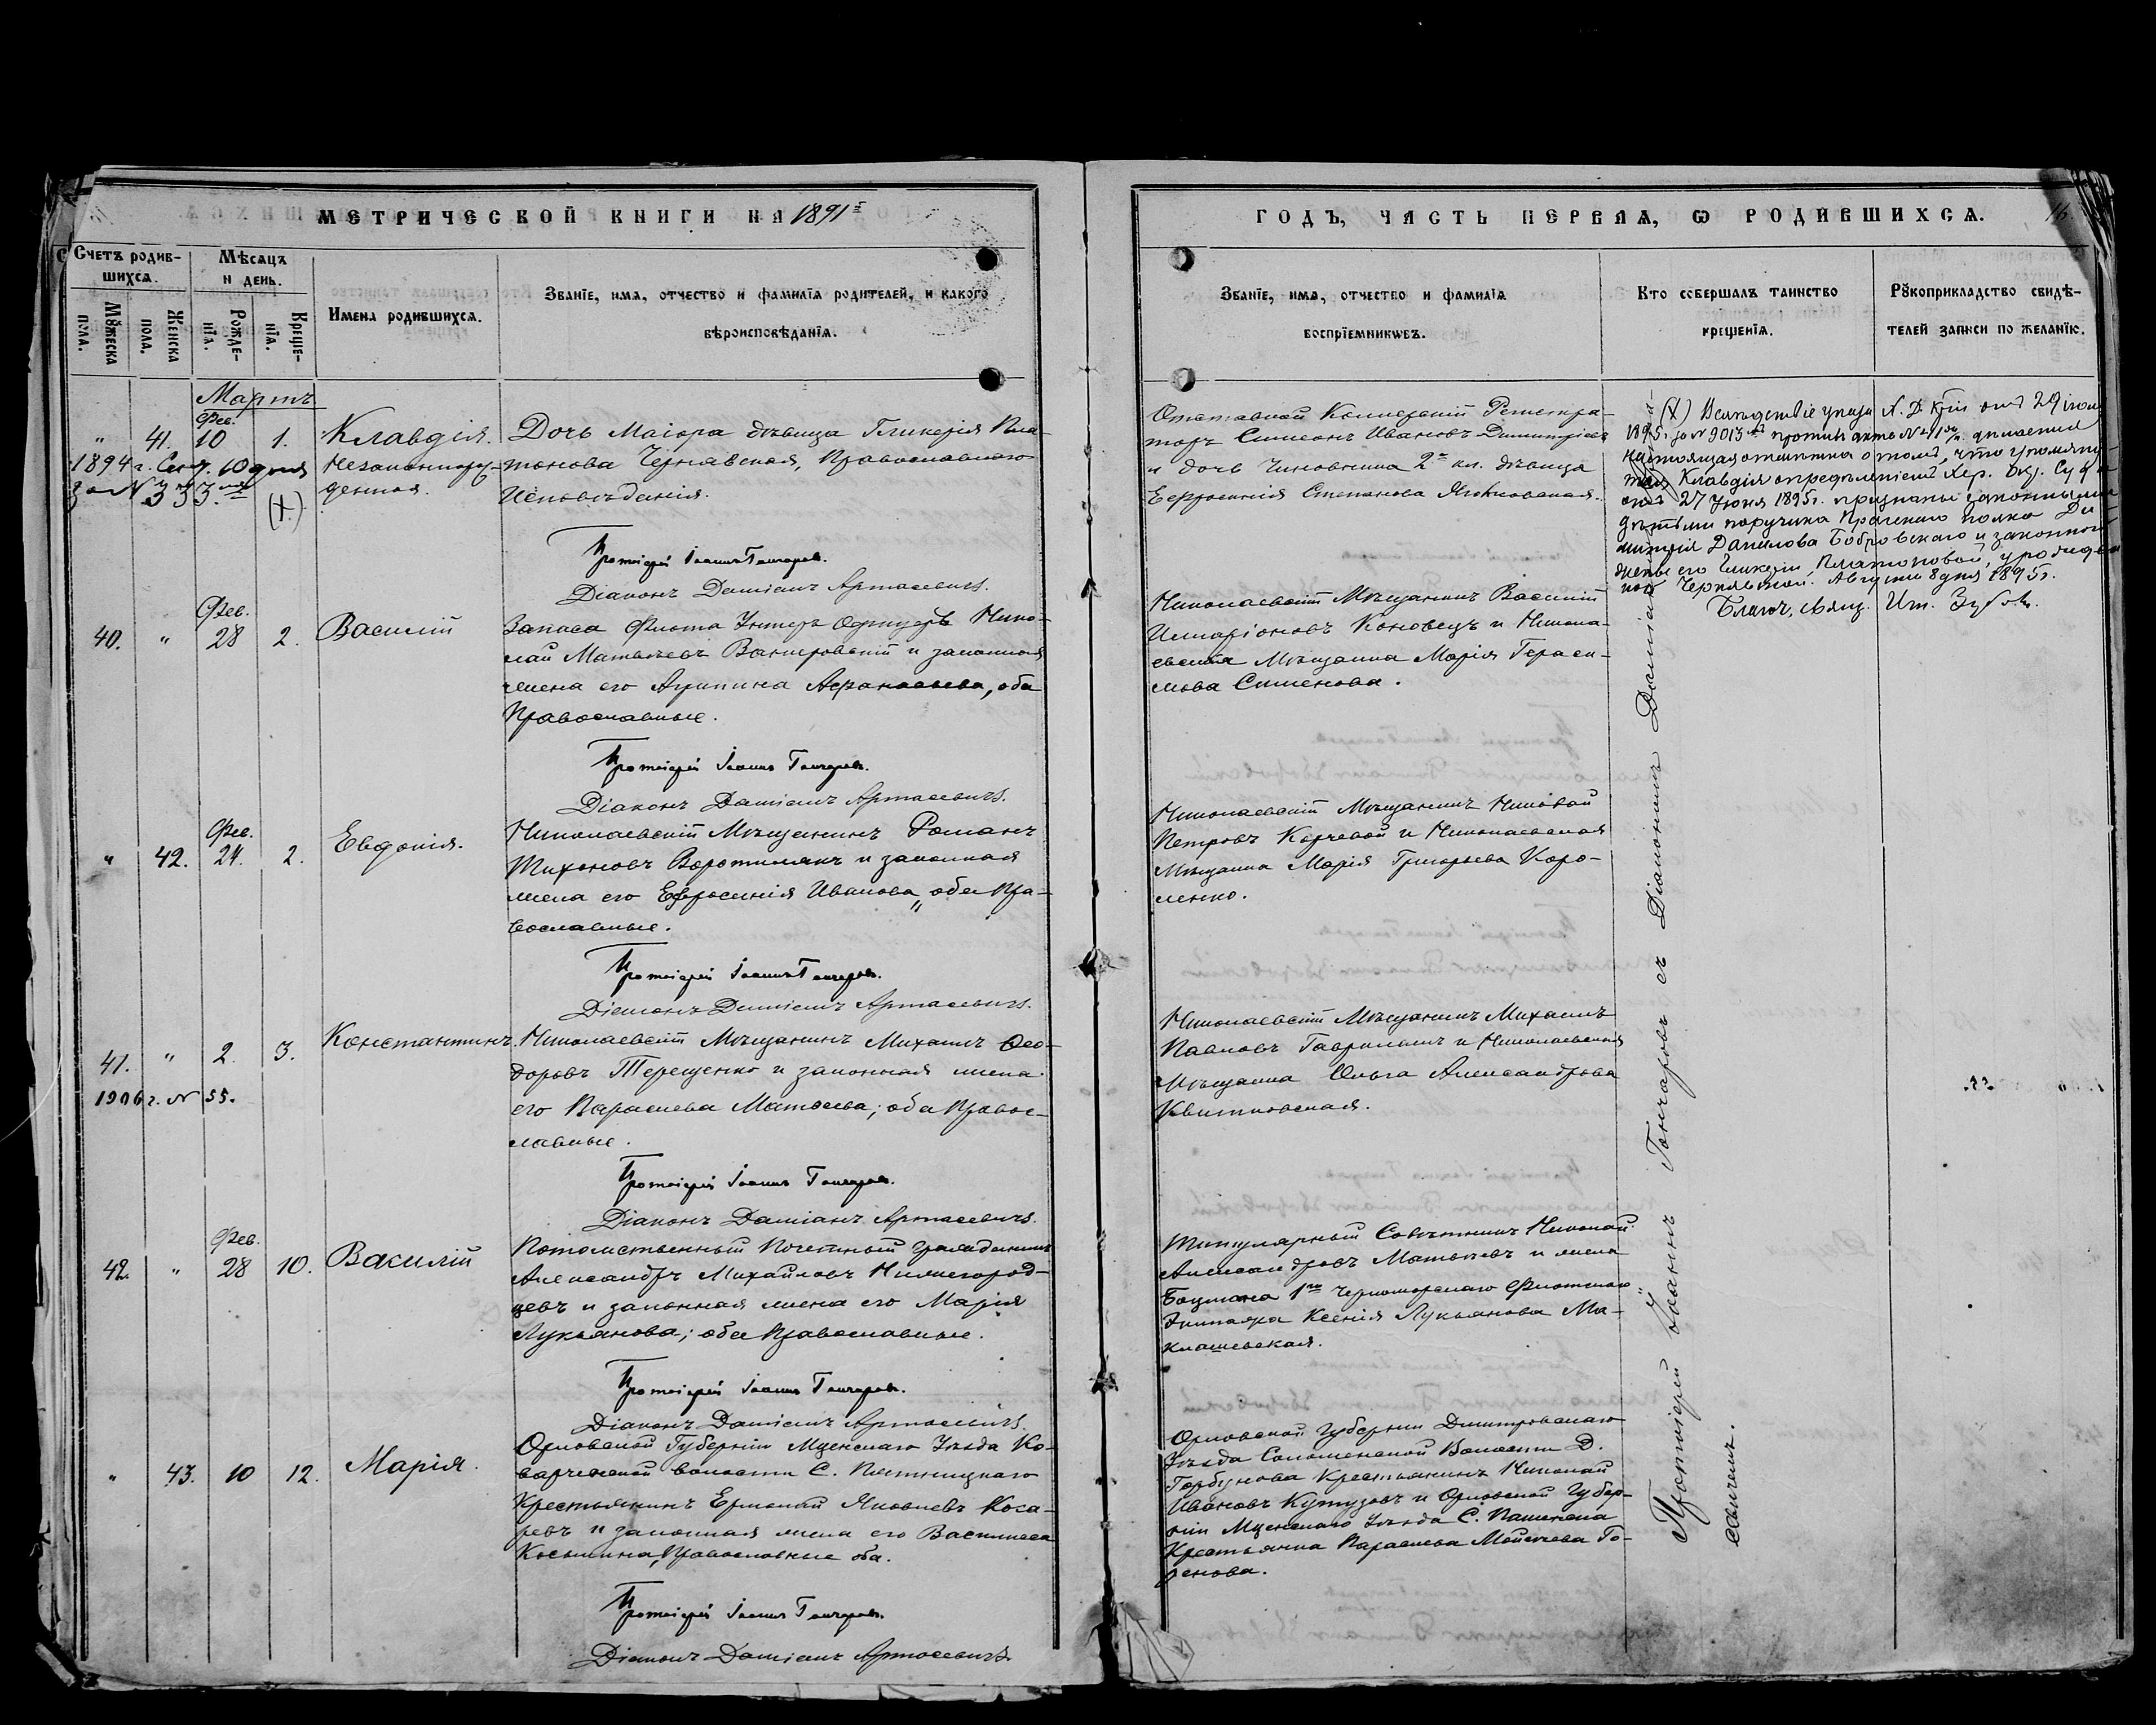 МЕТРИЧЕСКОЙ КНИГИ НА 1891й
ГОДЪ, ЧАСТЬ ПЕРВАЯ, Ѡ РОДИВШИХСЯ.
16
Счетъ родившихся.
Мѹжеска пола.
Женска пола.
Мѣсяцъ и день.
Рожденїя.
Крещенїя.
Имена родившихся.
Званїе, имя, отчество и фамилїя родителей, и какого
вѣроисповѣданїя.
Званїе, имя, отчество и фамилїя
воспрїемникѡвъ.
Кто совершалъ таинство
крещенїя.
Рѹкоприкладство свидѣ-
телей записи по желанїю.
Мартъ
Фев.
" 41. 10 1. Клавдія.
Незаконнорож-
денная.
1894 г. Сент. 10 дня
за № 333
(X)
Дочь Маіора дѣвица Гликерія Пла-
тонова Чернявская, Православнаго
Исповѣданія.
Протоіерей Іоаннъ Гончаровъ.
Діаконъ Даміанъ Артасевичъ.
Отставной Коллежскій Регистра-
торъ Симеонъ Ивановъ Димитріевъ
и дочь Чиновника 2й кл. дѣвица
Евфросинія Степанова
(X) Вслѣдствіе указа Х. Д. К. отъ 29 іюля
1895 г. за № 9013 противъ акта № 41 дѣлается
настоящая отмѣтка о томъ, что упомяну-
тая Клавдія опредѣленіемъ Хер. Окр. Суда
отъ 27 Іюня 1895 г. признаны законными
дѣтьми поручика Пражскаго полка Ди-
митрія Данилова Бобровскаго и законной
жены его Гликеріи Платоновой, урожден-
ной Чернявской. Августа 8 дня 1895 г.
Благоч. свящ. Зубовъ.
Фев.
40. " 28 2. Василій
Запаса Флота Унтеръ Офицеръ Нико-
лай Матвѣевъ и законная
жена его Агрипина Афанасьева, оба
Православные.
Протоіерей Іоаннъ Гончаровъ.
Діаконъ Даміанъ Артасевичъ.
Николаевскій Мѣщанинъ Василій
Илларіоновъ Коновецъ и Никола-
евская Мѣщанка Марія Гераси-
мова Сименова.
Фев.
" 42. 24. 2. Евдокія.
Николаевскій Мѣщанинъ Романъ
Тихоновъ и законная
жена его Евфросинія Иванова, оба Пра-
вославные.
Протоіерей Іоаннъ Гончаровъ.
Діаконъ Даміанъ Артасевичъ.
Николаевскій Мѣщанинъ Николай
Петровъ Корчевой и Николаевская
Мѣщанка Марія Григорьева Коро-
ленко.
41. " 2. 3. Константинъ.
1906 г. № 55.
Николаевскій Мѣщанинъ Михаилъ Ѳео-
доровъ Терещенко и законная жена
его Параскева Матвеева; оба Правос-
лавные.
Протоіерей Іоаннъ Гончаровъ.
Діаконъ Даміанъ Артасевичъ.
Николаевскій Мѣщанинъ Михаилъ
Павловъ и Николаевская
Мѣщанка Ольга Александрова
Квитковская.
Фев.
42. " 28 10. Василій
Потомственный Почетный Гражданинъ
Александръ Михайловъ Нижегород-
цевъ и законная жена его Марія
Лукьянова; оба Православные.
Протоіерей Іоаннъ Гончаровъ.
Діаконъ Даміанъ Артасевичъ.
Титулярный Совѣтникъ Николай
Александровъ Матвѣевъ и жена
Боцмана 1го Черноморскаго Флотскаго
Экипажа Ксенія Лукьянова Ма-
клашевская.
" 43. 10 12. Марія.
Орловской Губерніи Мценскаго Уѣзда
волости С. Пятницкаго
Крестьянинъ Ермолай Яковлевъ Коса-
ревъ и законная жена его Василиса
Косьмина, Православные оба.
Протоіерей Іоаннъ Гончаровъ.
Діаконъ Даміанъ Артасевичъ.
Орловской Губерніи Дмитровскаго
Уѣзда Волости Д.
Горбунова Крестьянинъ Николай
Ивановъ Кутузовъ и Орловской Губер-
ніи Мценскаго Уѣзда С.
Крестьянка Параскева Моисеева
Протоіерей Іоаннъ Гончаровъ съ Діакономъ Даміаномъ